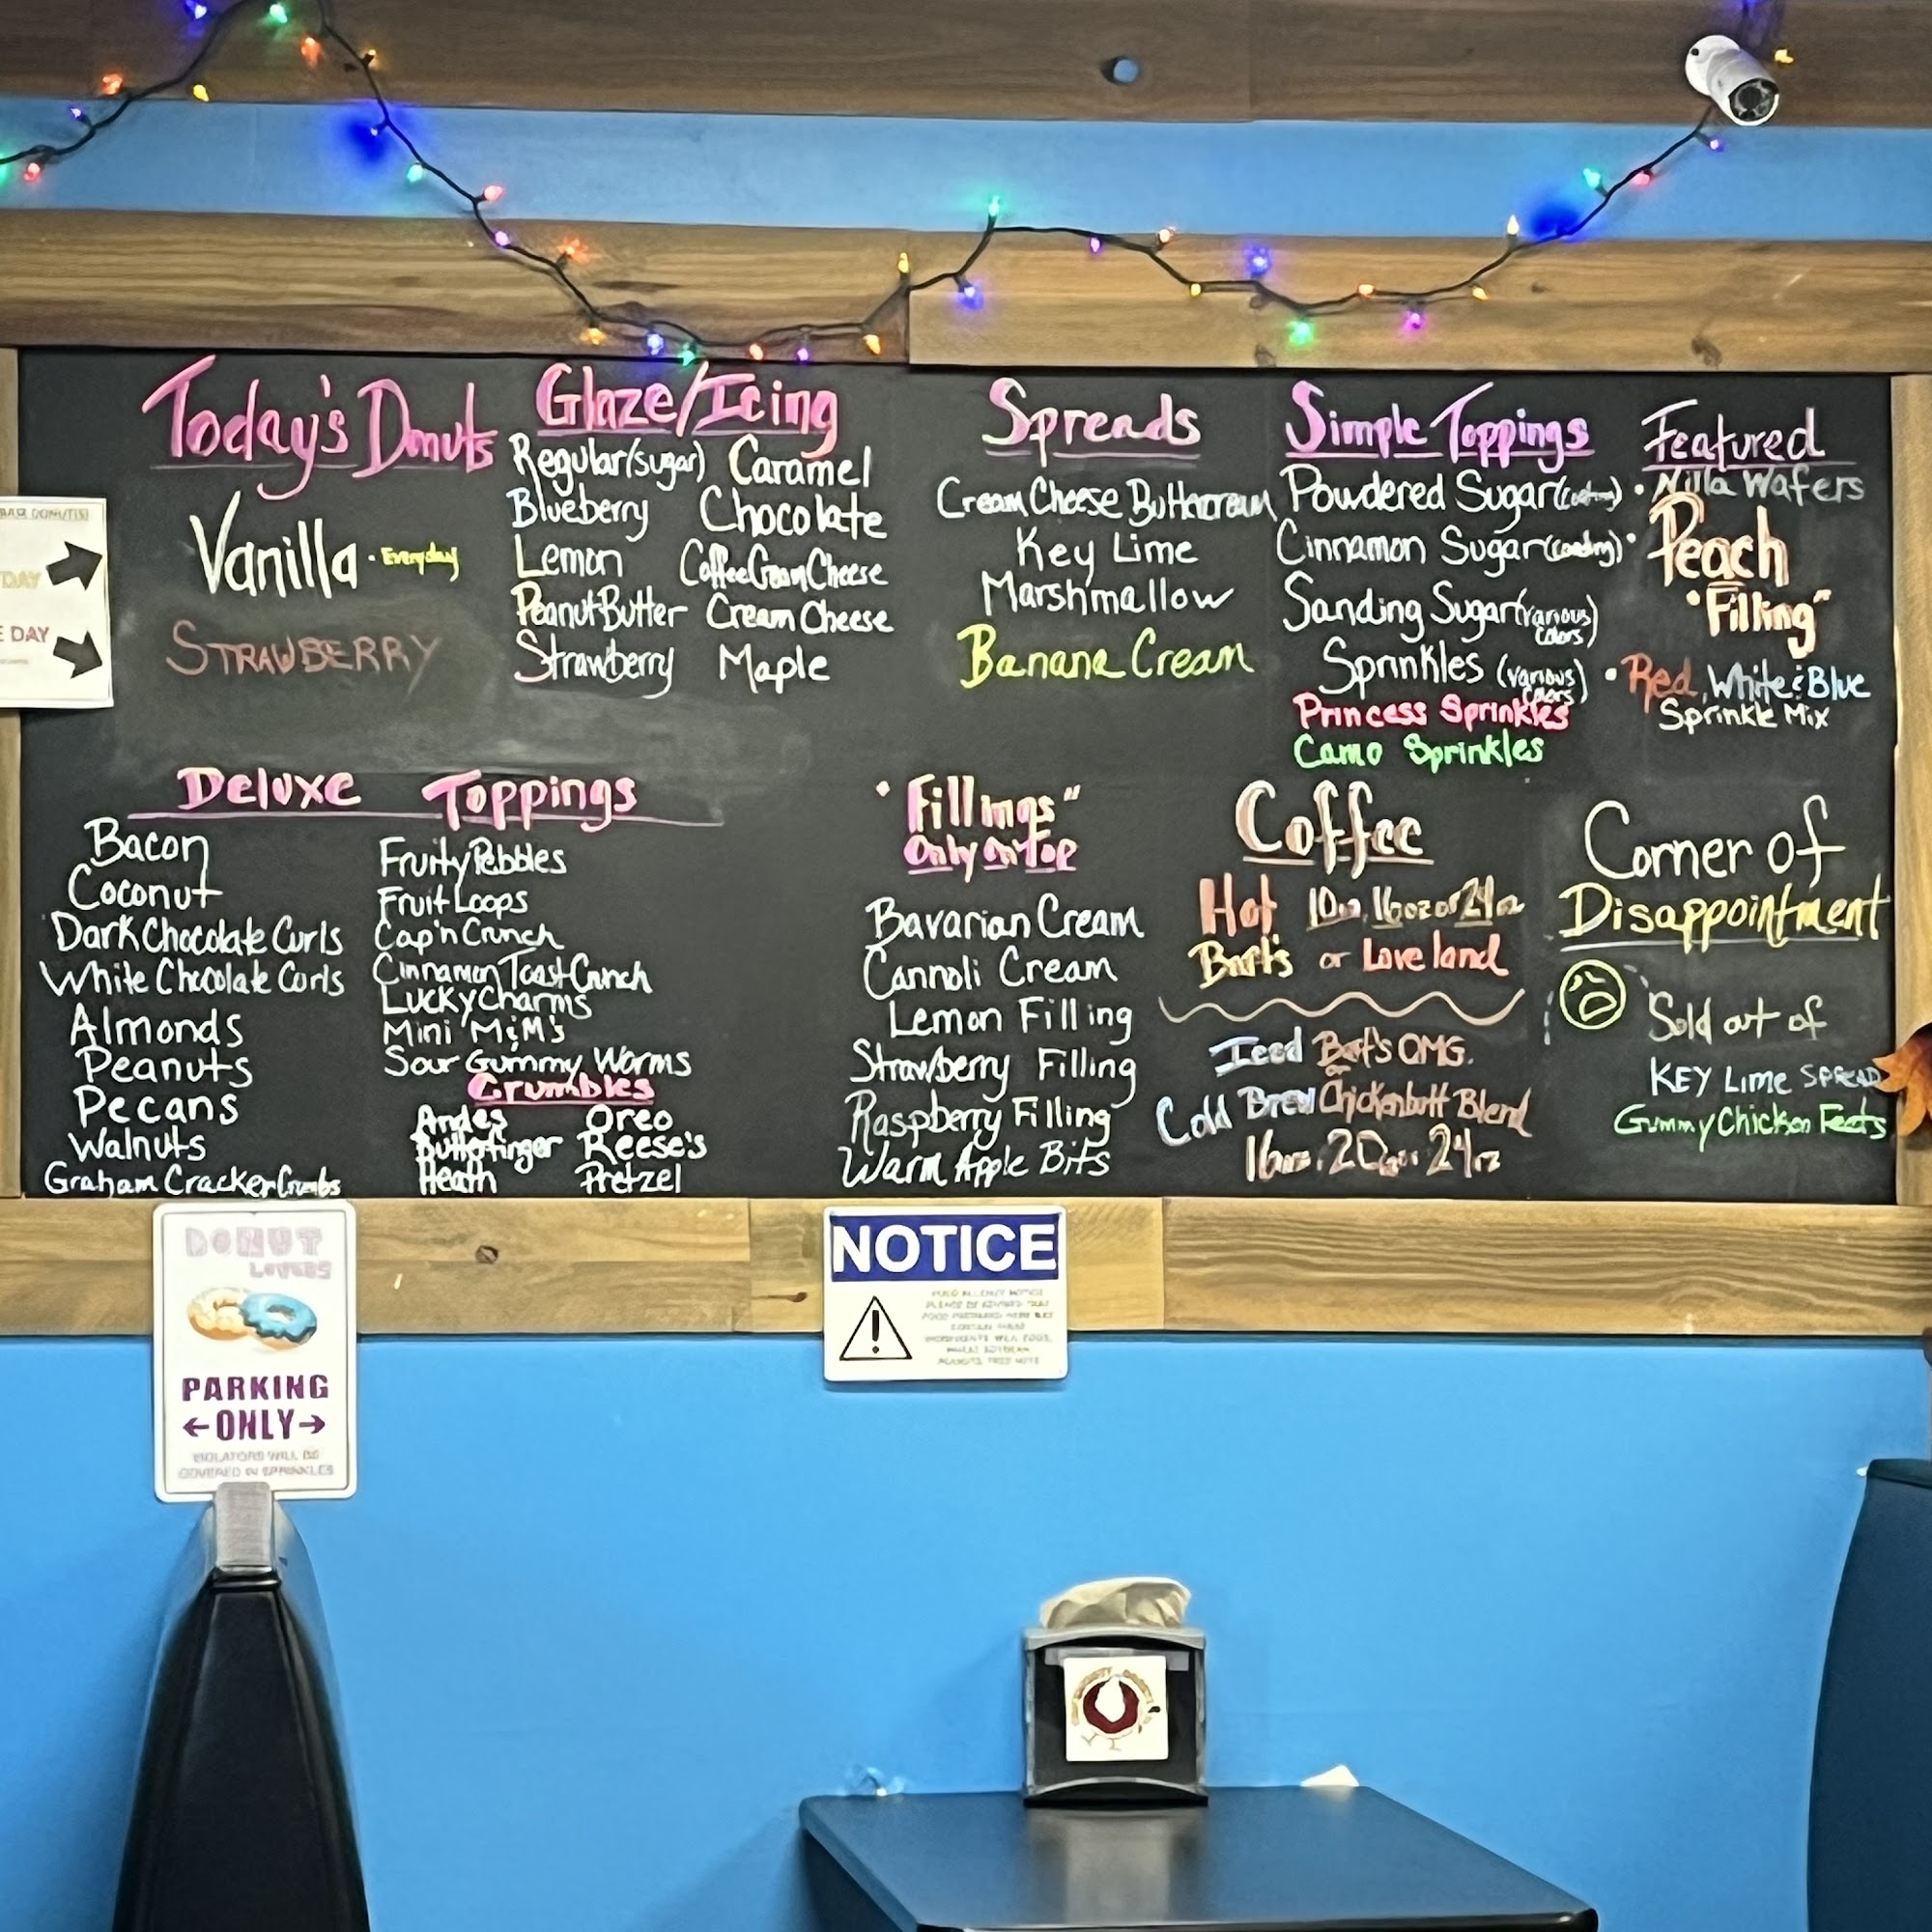 Today's Donuts
Vanilla · Everyday
STRAWBERRY
Glaze/Icing
Regular(sugar) Caramel
Blueberry Chocolate
Lemon Coffee Cream Cheese
Peanut Butter Cream Cheese
Strawberry Maple
Spreads
Cream Cheese Buttercream
Key Lime
Marshmallow
Banana Cream
Simple Toppings
Powdered Sugar(coating)
Cinnamon Sugar(coating)
Sanding Sugar(various
colors)
Sprinkles (various
colors)
Princess Sprinkles
Camo Sprinkles
Featured
· Nilla Wafers
· Peach
"Filling"
· Red, White & Blue
Sprinkle Mix
Deluxe Toppings
Bacon
Coconut
Dark Chocolate Curls
White Chocolate Curls
Almonds
Peanuts
Pecans
Walnuts
Graham Cracker Crumbs
Fruity Pebbles
Fruit Loops
Cap'n Crunch
Cinnamon Toast Crunch
Lucky Charms
Mini M&M's
Sour Gummy Worms
Crumbles
Andes Oreo
Butterfinger Reese's
Heath Pretzel
"Fillings"
Only on Top
Bavarian Cream
Cannoli Cream
Lemon Filling
Strawberry Filling
Raspberry Filling
Warm Apple Bits
Coffee
Hot 10oz, 16oz or 24oz
Bart's or Loveland
Iced Bart's OMG.
or
Cold Brew Chickenbutt Blend
16oz. 20oz. 24oz
Corner of
Disappointment
Sold out of
KEY Lime SPREAD
Gummy Chicken Feets
DAY
E DAY
DONUT
LOVERS
PARKING
←ONLY→
VIOLATORS WILL BE
COVERED IN SPRINKLES
NOTICE
FOOD ALLERGY NOTICE
PLEASE BE ADVISED THAT
FOOD PREPARED HERE MAY
CONTAIN THESE
INGREDIENTS: MILK, EGGS,
WHEAT, SOYBEAN,
PEANUTS, TREE NUTS